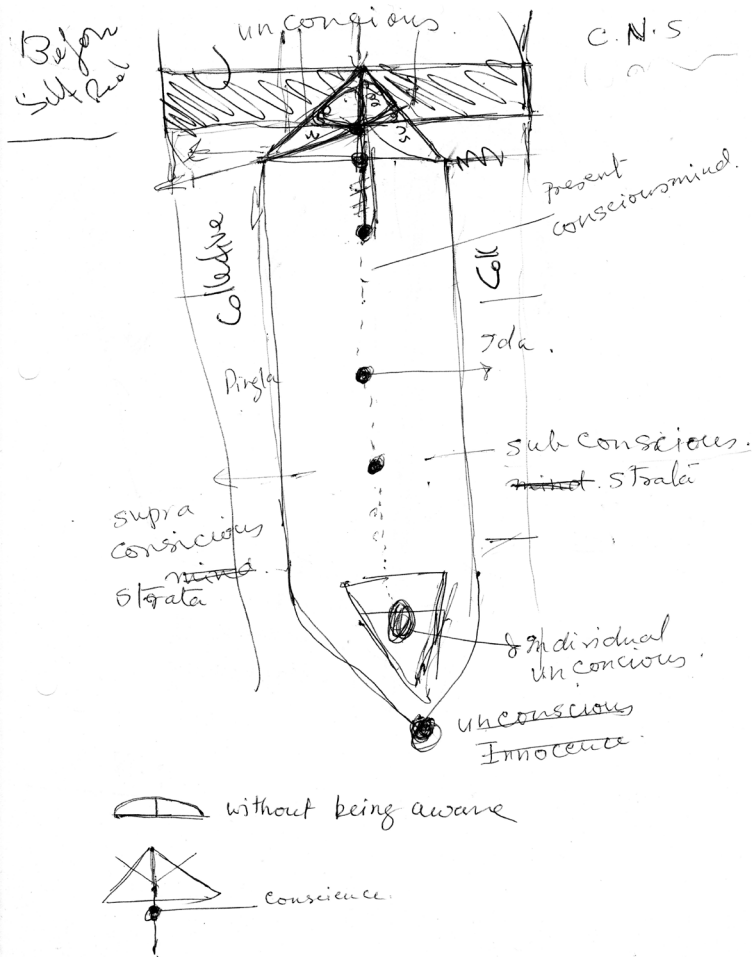 unconcious.
C.N.S
present
consciousmind.
Collective
Coll
Ida.
Pingla
sub conscious.
mind. strata
supra
consicious
mind.
strata
Individual
unconcious.
unconscious
Innocence.
without being aware
conscience.